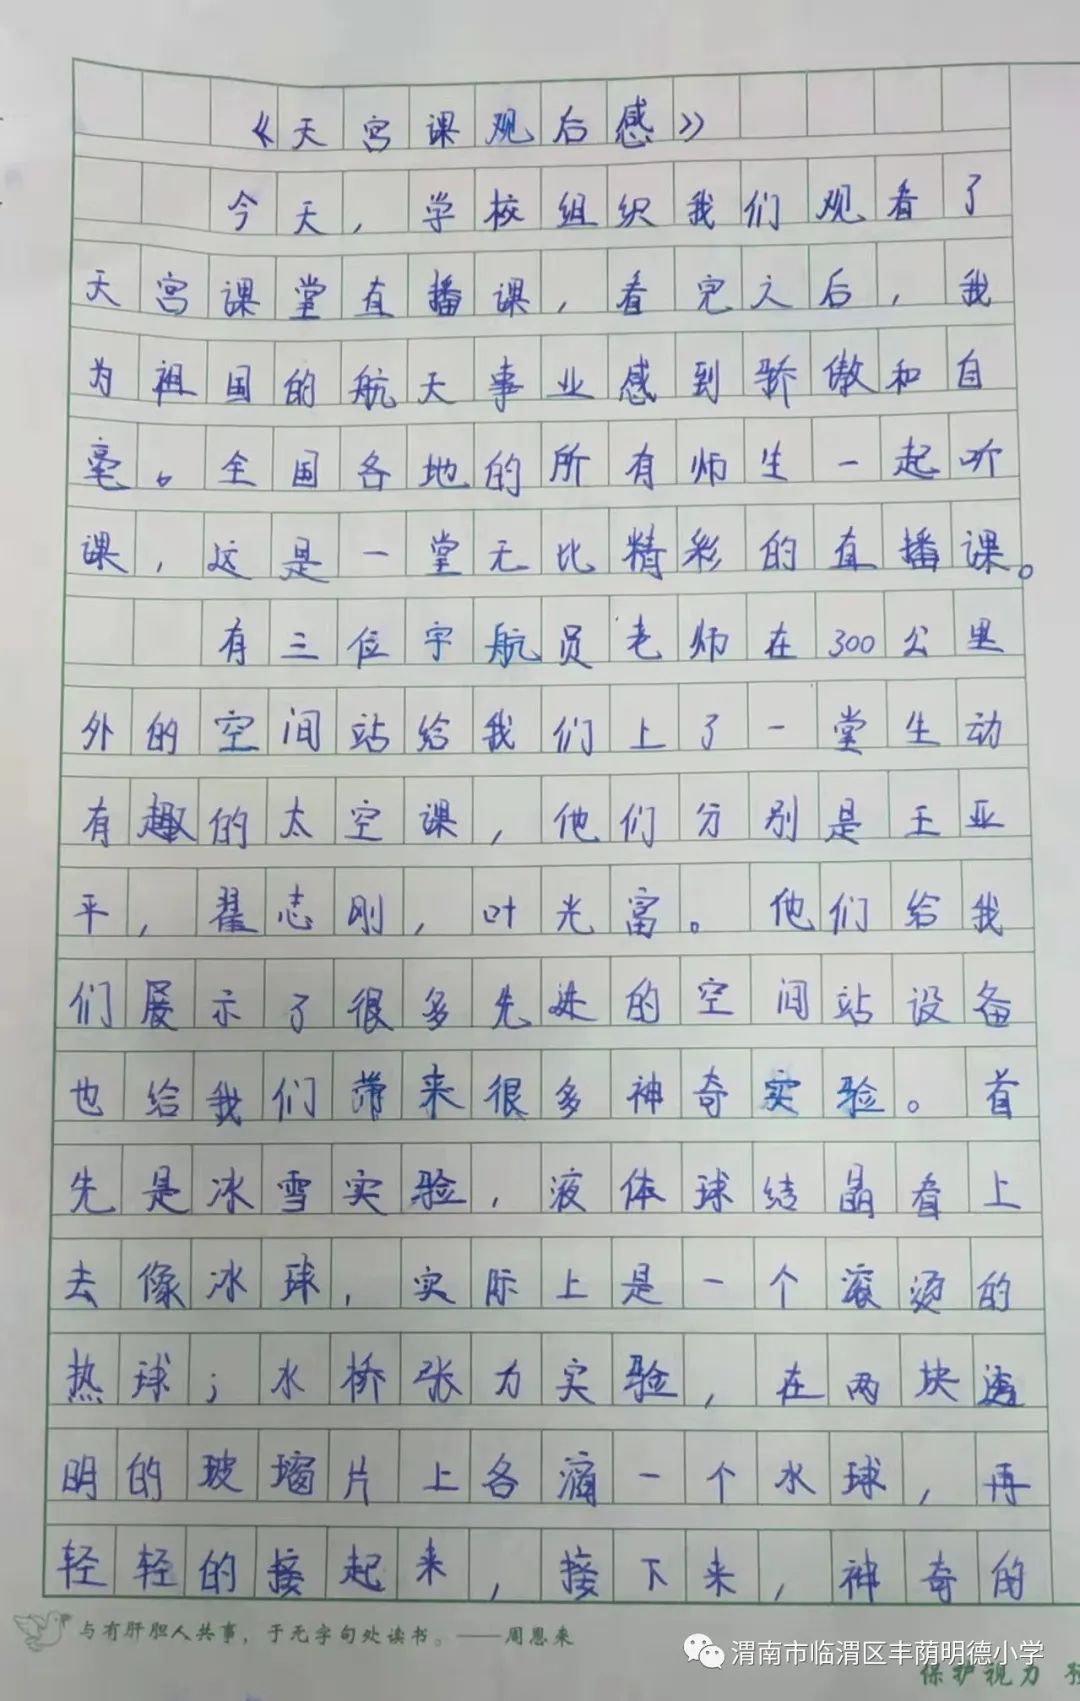 《天宫课观后感》
今天，学校组织我们观看了
天宫课堂直播课，看完之后，我
为祖国的航天事业感到骄傲和自
毫。全国各地的所有师生一起听
课，这是一堂无比精彩的直播课。
有三位宇航员老师在300公里
外的空间站给我们上了一堂生动
有趣的太空课，他们分别是王亚
平，翟志刚，叶光富。他们给我
们展示了很多先进的空间站设备
也给我们带来很多神奇实验。首
先是冰雪实验，液体球结晶看上
去像冰球，实际上是一个滚烫的
热球；水桥张力实验，在两块透
明的玻璃片上各滴一个水球，再
轻轻的接起来，接下来，神奇的
与有肝胆人共事，于无字句处读书。——周恩来
渭南市临渭区丰荫明德小学
保护视力